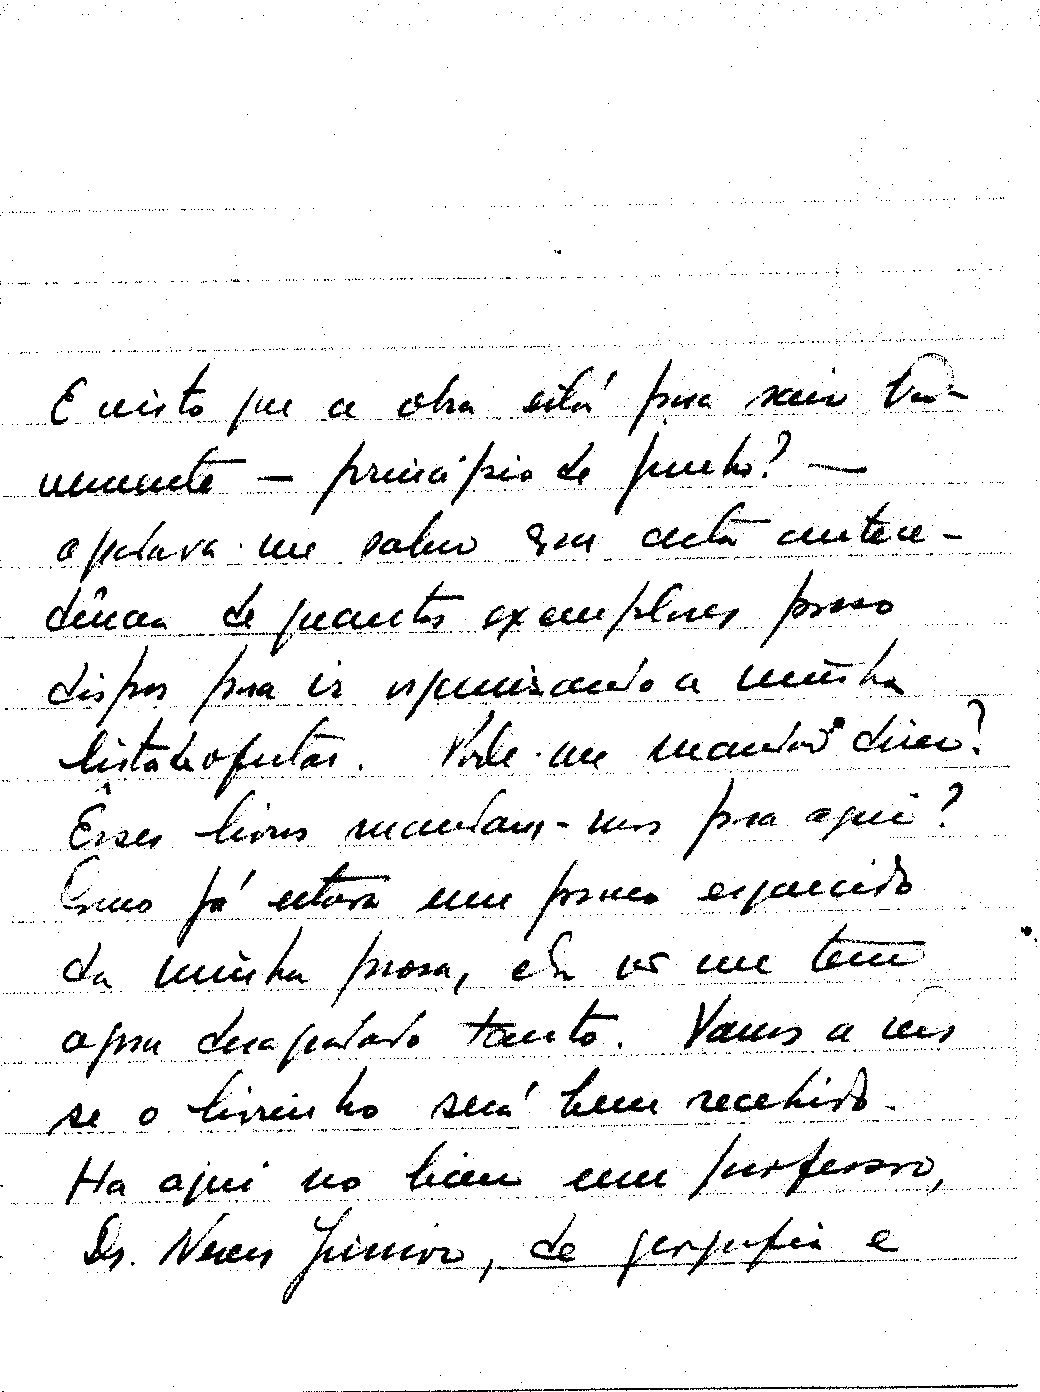 E visto que a obra está para sair bre-
vemente — princípio de junho? —
agradava-me saber com certa antece-
dência de quantos exemplares posso
dispor para ir organizando a minha
lista de ofertas. Pode-me mandar dizer?
Êsses livros mandam-nos para aqui?
Como já estava um pouco esquecido
da minha prosa, ela não me tem
agora desagradado tanto. Vamos a ver
se o livrinho será bem recebido.
Ha aqui no liceu um professor,
Dr. Neves Júnior, de geografia e